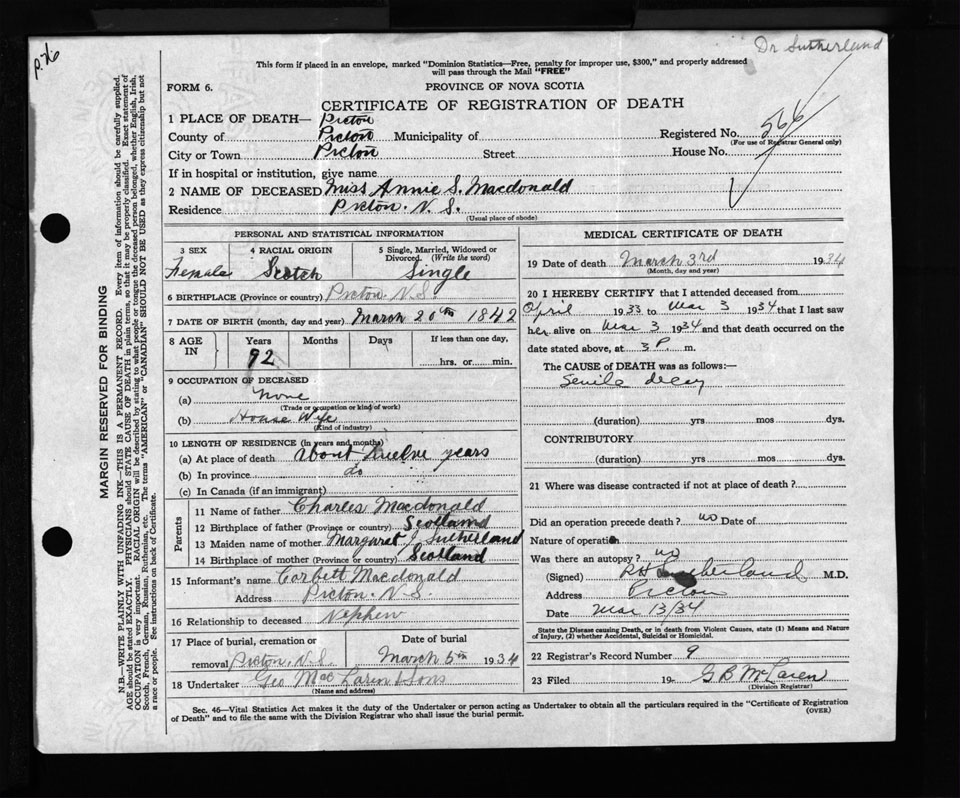 p. 76
Dr Sutherland
This form if placed in an envelope, marked "Dominion Statistics—Free, penalty for improper use, $300," and properly addressed
will pass through the Mail "FREE"
FORM 6.
PROVINCE OF NOVA SCOTIA
CERTIFICATE OF REGISTRATION OF DEATH
1 PLACE OF DEATH— Picton
County of Picton Municipality of Registered No. 566
(For use of Registrar General only)
City or Town Picton Street House No.
If in hospital or institution, give name
2 NAME OF DECEASED Miss Annie S. Macdonald
Residence Picton. N. S.
(Usual place of abode)
PERSONAL AND STATISTICAL INFORMATION
3 SEX 4 RACIAL ORIGIN 5 Single, Married, Widowed or
Divorced. (Write the word)
Female Scotch Single
6 BIRTHPLACE (Province or country) Picton N.S.
7 DATE OF BIRTH (month, day and year) March 20th 1842
8 AGE IN Years Months Days If less than one day,
92 hrs. or min.
9 OCCUPATION OF DECEASED
(a) None
(Trade or occupation or kind of work)
(b) House Wife
(Kind of industry)
10 LENGTH OF RESIDENCE (in years and months)
(a) At place of death about twelve years
(b) In province do
(c) In Canada (if an immigrant)
Parents
11 Name of father Charles Macdonald
12 Birthplace of father (Province or country) Scotland
13 Maiden name of mother Margaret J Sutherland
14 Birthplace of mother (Province or country) Scotland
15 Informant's name Corbett Macdonald
Address Picton. N.S.
16 Relationship to deceased Nephew
17 Place of burial, cremation or Date of burial
removal Picton. N.S. March 5th 1934
18 Undertaker Geo MacLaren & Sons
(Name and address)
MEDICAL CERTIFICATE OF DEATH
19 Date of death March 3rd 1934
(Month, day and year)
20 I HEREBY CERTIFY that I attended deceased from
April 1933 to Mar 3 1934 that I last saw
her alive on Mar 3 1934 and that death occurred on
date stated above, at 3 P. m.
The CAUSE OF DEATH was as follows:—
Senile decay
(duration) yrs mos dys.
CONTRIBUTORY
(duration) yrs mos dys.
21 Where was disease contracted if not at place of death?
Did an operation precede death? no Date of
Nature of operation
Was there an autopsy? no
(Signed) RH Sutherland M.D.
Address Picton
Date Mar 13/34
State the Disease causing Death, or in death from Violent Causes, state (1) Means and Nature
of Injury, (2) whether Accidental, Suicidal or Homicidal.
22 Registrar's Record Number 9
23 Filed 19 G B McLaren
(Division Registrar)
Sec. 46—Vital Statistics Act makes it the duty of the Undertaker or person acting as Undertaker to obtain all the particulars required in the "Certificate of Registration
of Death" and to file the same with the Division Registrar who shall issue the burial permit.
(OVER)
MARGIN RESERVED FOR BINDING
N.B.—WRITE PLAINLY WITH UNFADING INK—THIS IS A PERMANENT RECORD. Every item of information should be carefully supplied.
AGE should be stated EXACTLY. PHYSICIANS should STATE CAUSE OF DEATH in plain terms, so that it may be properly classified. Exact statement of
OCCUPATION is very important. RACIAL ORIGIN will be described by stating to what people or tongue the deceased person belonged, whether English, Irish,
Scotch, French, German, Russian, Ruthenian, etc. The terms "AMERICAN" or "CANADIAN" SHOULD NOT BE USED as they express citizenship but not
a race or people. See instructions on back of Certificate.